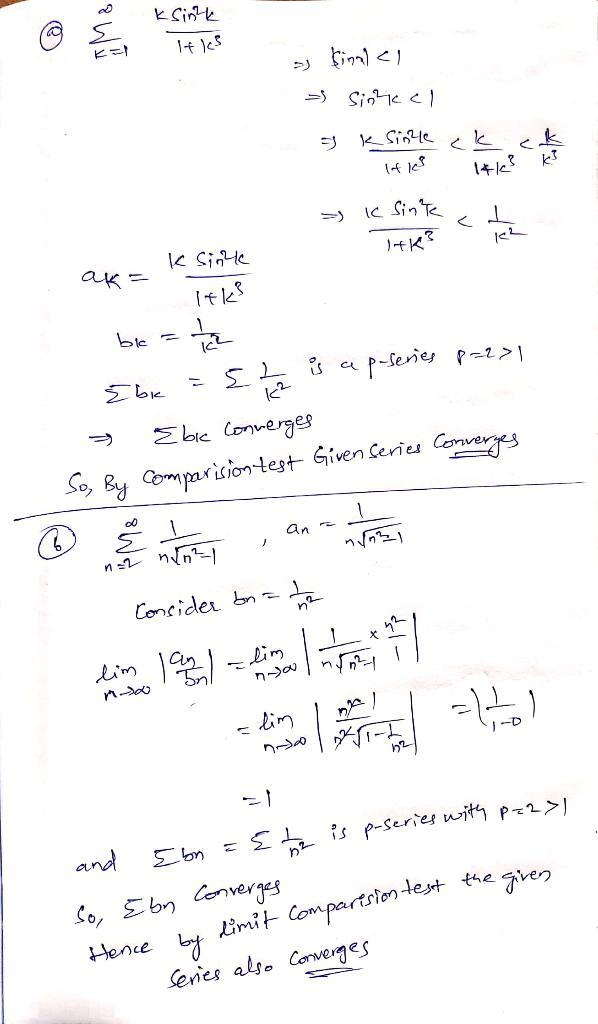 (a) ∞ Σ k=1 k sin²k / 1+k³
=> |sin x| < 1
=> sin²k < 1
=> k sin²k / 1+k³ < k / 1+k³ < k / k³
=> k sin²k / 1+k³ < 1 / k²
ak = k sin²k / 1+k³
bk = 1 / k²
Σbk = Σ 1/k² is a p-series p=2>1
=> Σbk converges
So, By comparision test Given Series Converges
(b) ∞ Σ n=2 1 / n√n²-1 , an = 1 / n√n²-1
Concider bn = 1 / n²
lim n→∞ |an / bn| = lim n→∞ | 1 / n√n²-1 × n² / 1 |
= lim n→∞ | n² 1 / n²√1-1/n² | = | 1 / 1-0 |
= 1
and Σbn = Σ 1/n² is p-series with p=2>1
So, Σbn Converges
Hence by limit Comparesion test the given
Series also Converges